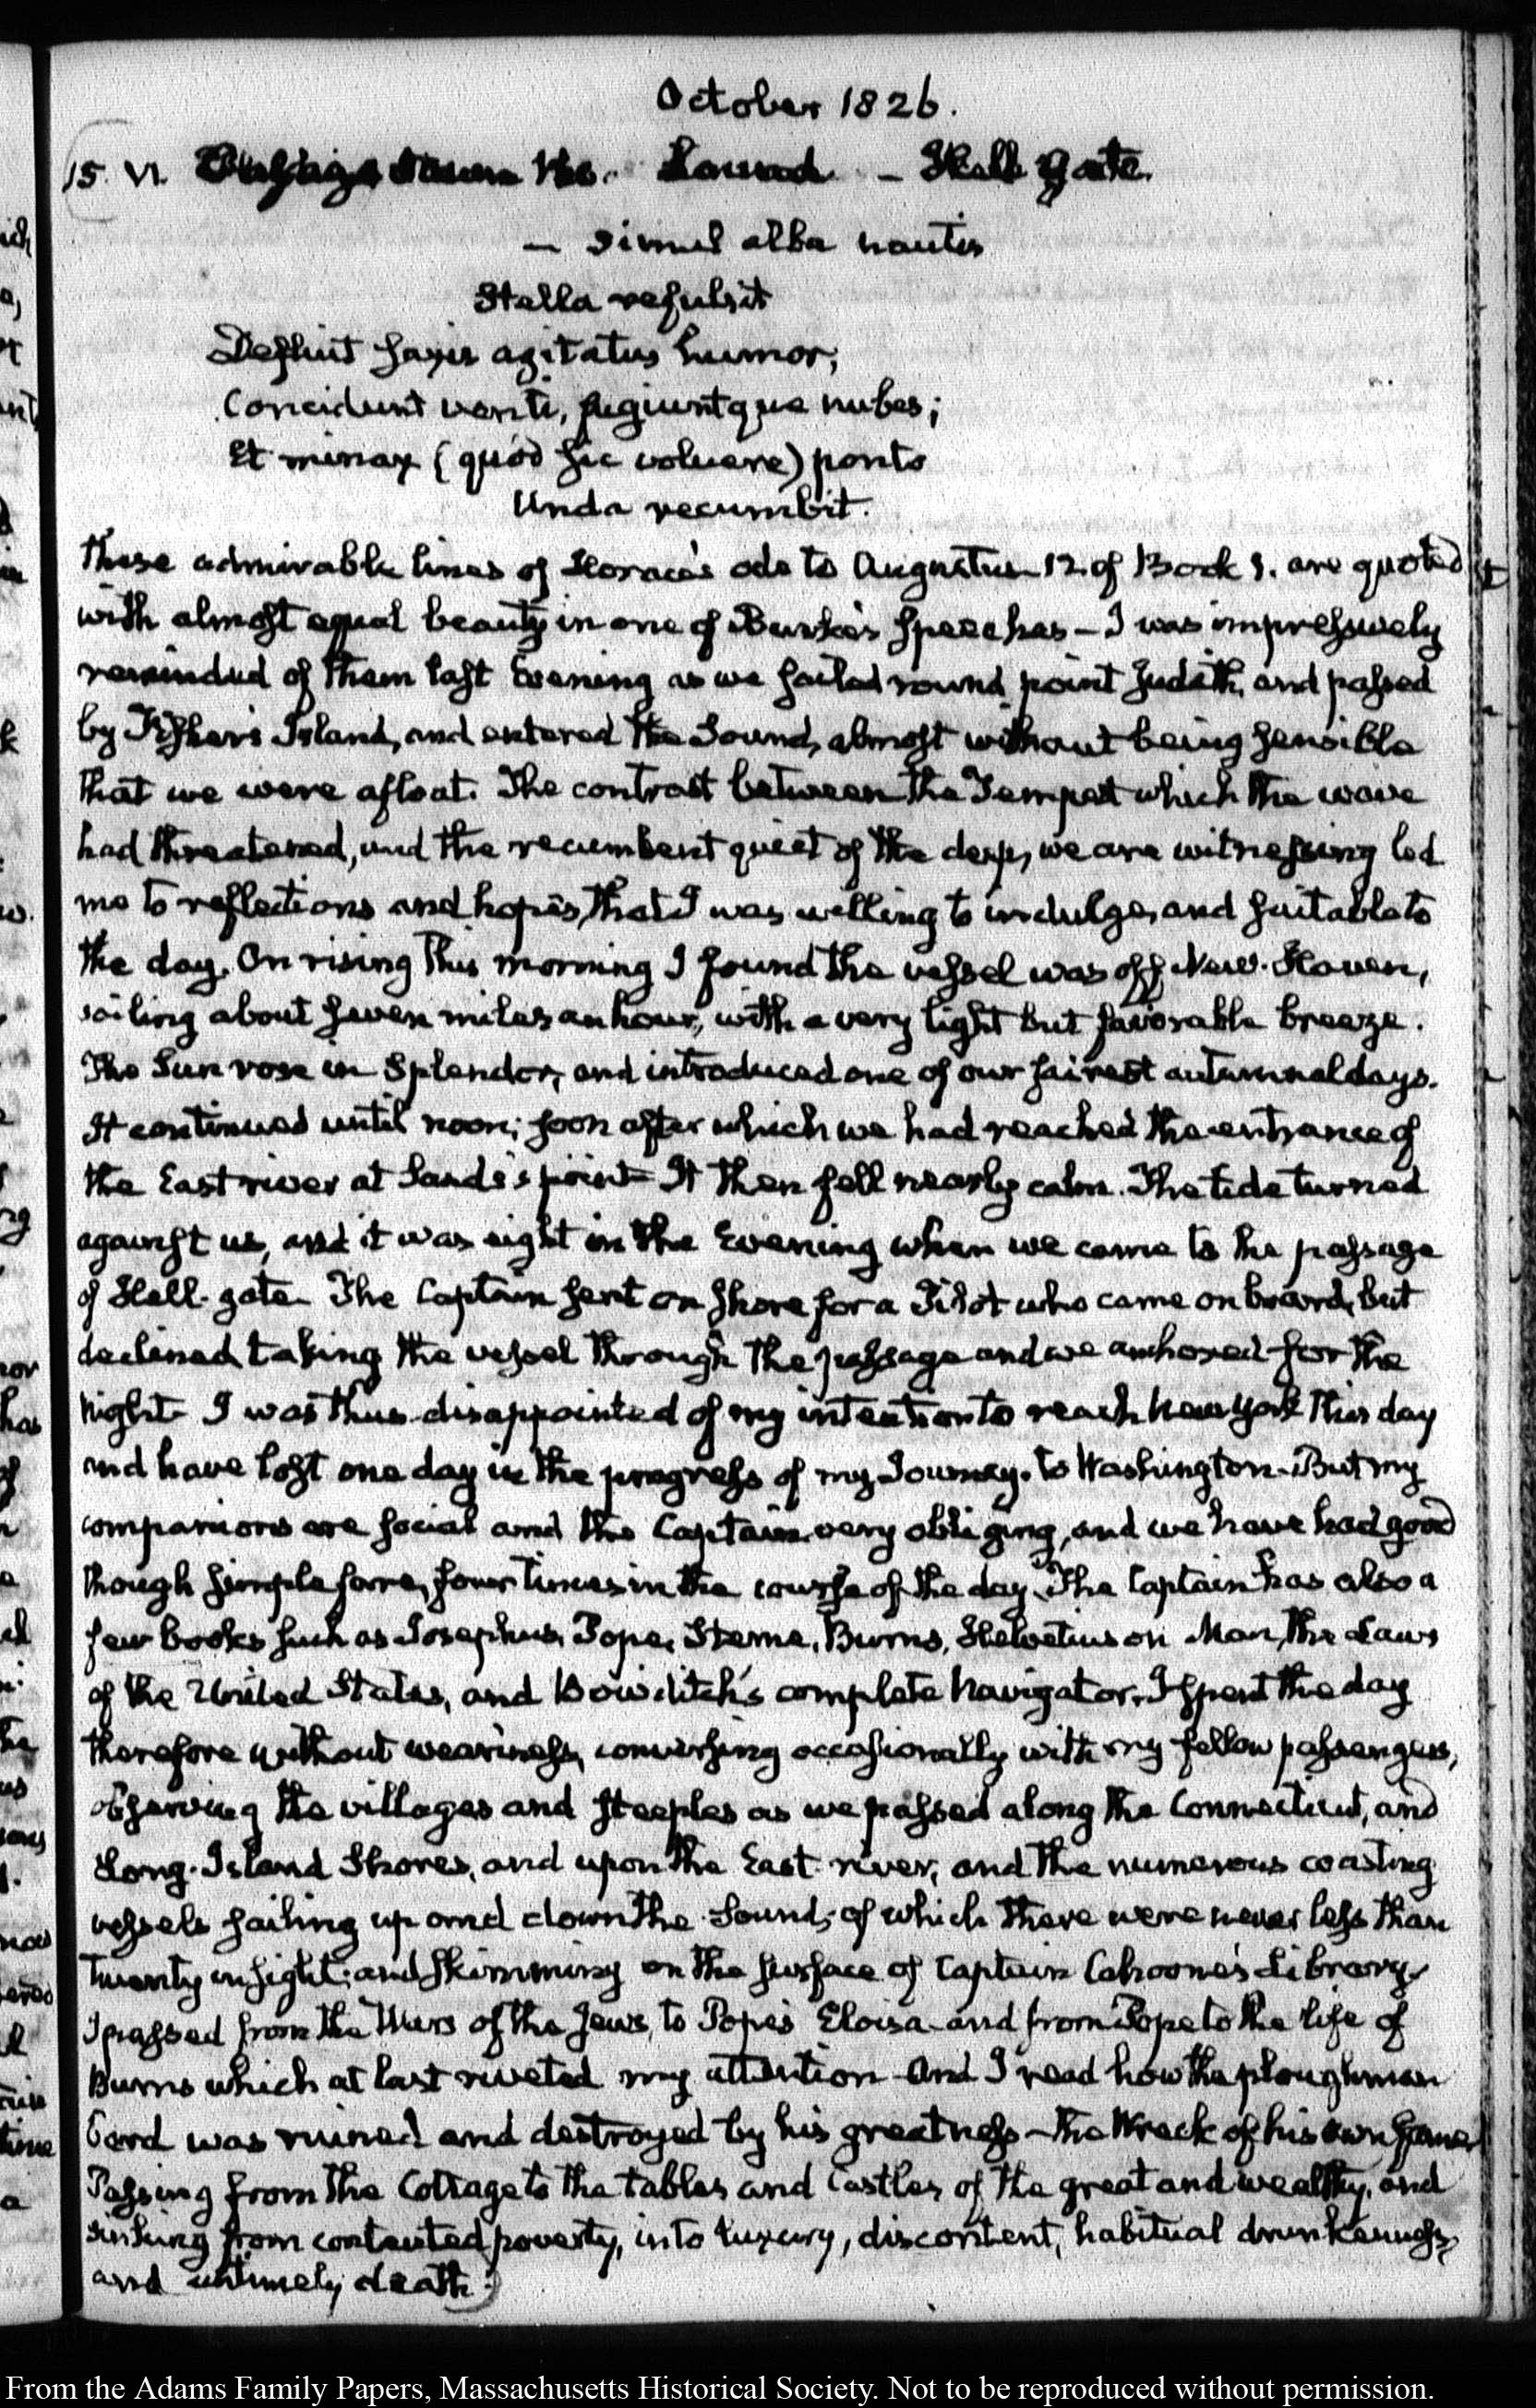 October 1826.
15. VI. Passage down the Sound — Hell Gate.
— Simul alba nautis
Stella refulsit
Defluit saxis agitatus humor;
Concidunt venti, fugiuntque nubes;
Et minax (quòd sic voluere) ponto
Unda recumbit.
These admirable lines of Horace's ode to Augustus 12. of Book 1. are quoted
with almost equal beauty in one of Burke's speeches — I was impressively
reminded of them last Evening as we sailed round point Judith, and passed
by Fisher's Island, and entered the Sound, almost without being sensible
that we were afloat. The contrast between the Tempest which the wave
had threatened, and the recumbent quiet of the deep, we are witnessing led
me to reflections and hopes, that I was willing to indulge, and suitable to
the day. On rising this morning I found the vessel was off New-Haven,
sailing about seven miles an hour, with a very light but favorable breeze.
The Sun rose in Splendor, and introduced one of our fairest autumnal days.
It continued until noon; soon after which we had reached the entrance of
the East river at Sands's point — It then fell nearly calm. The tide turned
against us, and it was eight in the Evening when we came to the passage
of Hell-gate — The Captain sent on shore for a Pilot who came on board, but
declined taking the vessel through the passage and we anchored for the
Night — I was thus disappointed of my intention to reach New York this day
and have lost one day in the progress of my Journey to Washington — But my
companions are social and the Captain very obliging, and we have had good
though simple fare, four times in the course of the day. The Captain has also a
few books such as Josephus, Pope, Sterne, Burns, Helvetius on Man, the Laws
of the United States, and Bowditch's complete Navigator. I spent the day
therefore without weariness, conversing occasionally with my fellow passengers,
observing the villages and steeples as we passed along the Connecticut, and
Long-Island Shores, and upon the East river, and the numerous coasting
vessels sailing up and down the Sound, of which there were never less than
twenty in sight; and skimming on the surface of Captain Cahoone's Library,
I passed from the Wars of the Jews, to Pope's Eloisa — and from Pope to the life of
Burns which at last riveted my attention — And I read how the ploughman
bard was ruined and destroyed by his greatness — the Wreck of his own fame
Passing from the Cottage to the tables and Castles of the great and wealthy, and
sinking from contented poverty, into luxury, discontent, habitual drunkenness,
and untimely death.
From the Adams Family Papers, Massachusetts Historical Society. Not to be reproduced without permission.